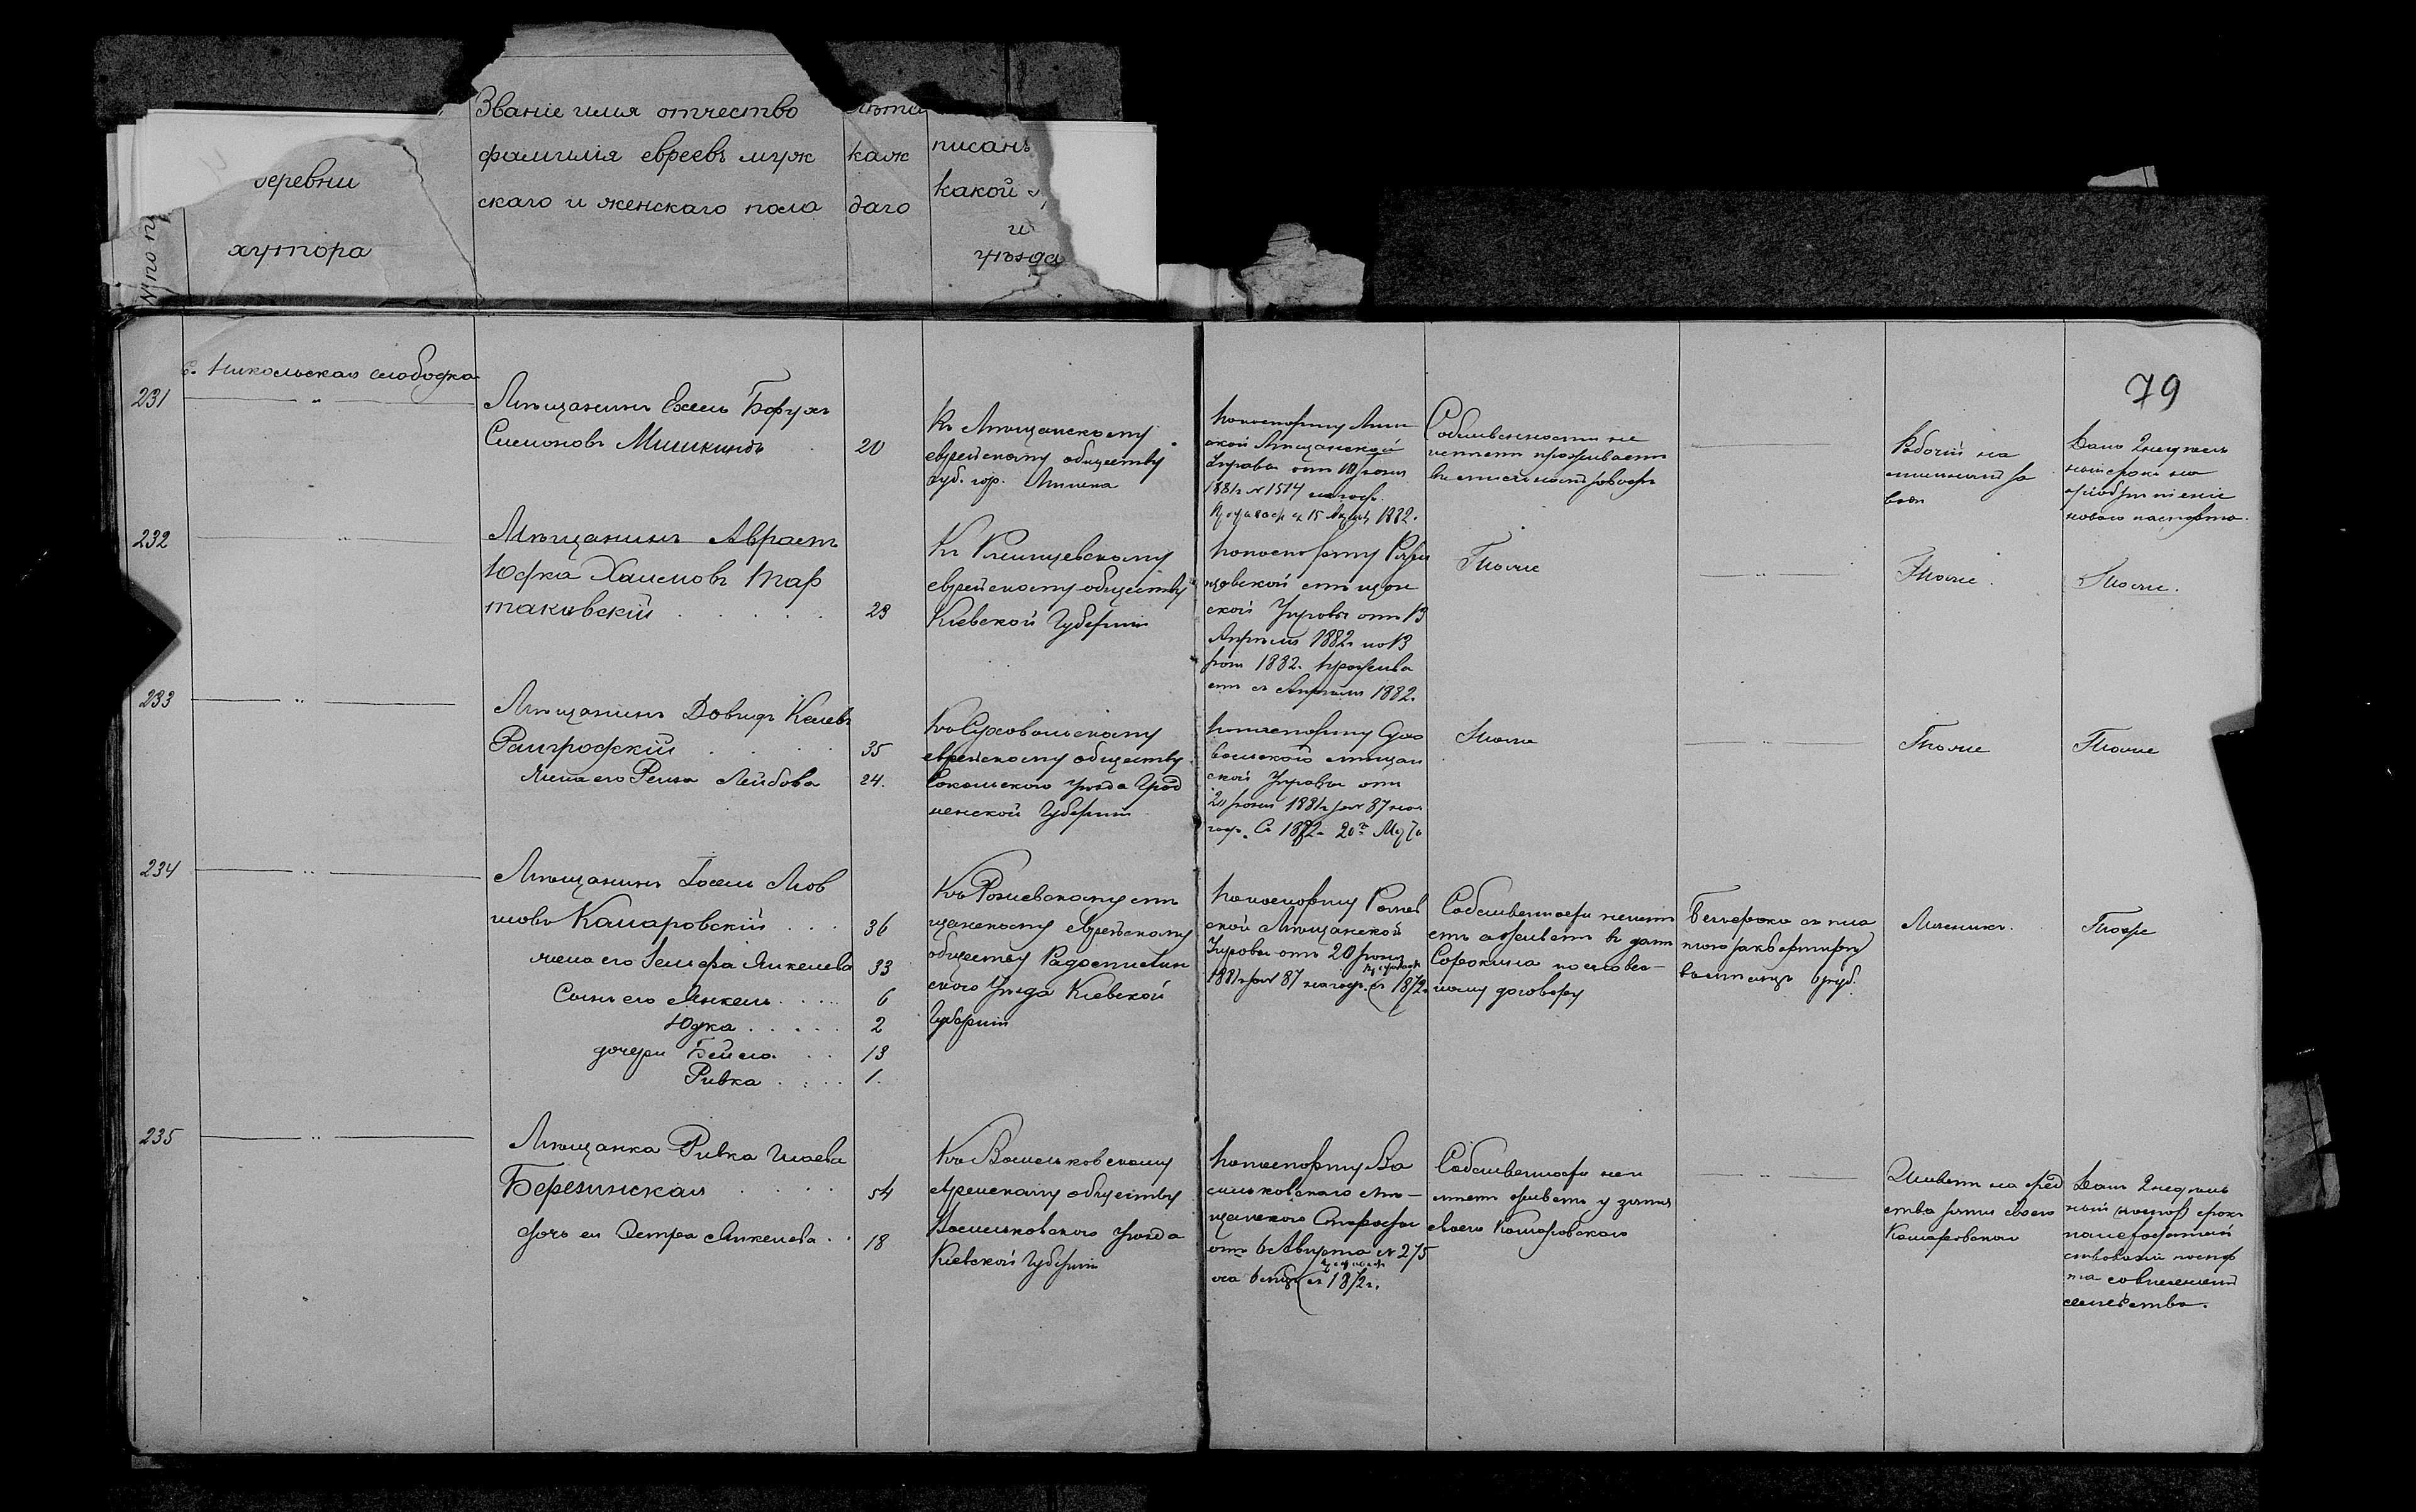 деревни
хутора
Званіе имя отчество
фамилія евреевъ муж
скаго и женскаго пола
лѣта
каж
даго
писанъ
какой
и
уѣзда
79
с. Никольская слободка
231
Мѣщанинъ Хаим Борухъ
Симоновъ Мишкинъ
20
Къ Мѣщанскому
еврейскому обществу
губ. гор. Минска
По паспорту Мин
ской Мѣщанской
Управы отъ 10 юня
1881 г № 1514 на годъ.
с 15 1882.
Собственности не
имѣетъ проживаетъ
Рабочій на
за
водѣ
Дано 2 недѣль
ный срокъ на
пріобрѣтеніе
новаго паспорта.
232
Мѣщанинъ Авраамъ
Юдка Хаимовъ Тар
таковскій
23
Къ Ржищевскому
еврейскому обществу
Кіевской Губерніи
По паспорту Ржи
щевской мѣщан
ской Управы отъ 13
Апрѣля 1882 г по 13
юля 1882. прожива
етъ съ Апрѣля 1882.
Тоже
Тоже.
Тоже.
233
Мѣщанинъ Довидъ
Райгродскій
35
жена его Лейбова
24.
Къ Суховольскому
еврейскому обществу
Сокольского уѣзда Грод
ненской Губерніи
По паспорту Сухо
вольской мѣщан
ской Управы отъ
20 юня 1881 г за № 87 на
годъ. Съ 1872 г. 20го
Тоже
Тоже
Тоже
234
Мѣщанинъ Іосель Мов
шовъ Камаровскій
36
жена его Янкелева
33
Сынъ его Янкель
6
Юдка
2
дочери Бейла
13
Ривка
1.
Къ Рожевскому мѣ
щанскому еврейскому
обществу Радомысль
ского Уѣзда Кіевской
Губерніи
По паспорту Рожев
ской Мѣщанской
Управы отъ 20 юня
1881 г за № 87 на годъ. съ 1872 г.
Собственности неимѣ
етъ а живетъ в домѣ
Сорокина по словес-
ному договору
Безсрочно съ пла
тою за квартиру
въ мѣсяцъ 6 руб.
Мясникъ.
Тоже
235
Мѣщанка Ривка Шаева
Березинская
54
дочь ея Эстра Янкелева
18
Къ Васильковскому
еврейскому обществу
Васильковского уѣзда
Кіевской Губерніи
По паспорту Ва
сильковского мѣ-
щанского Старосты
отъ 6 Августа № 275
на 6 мѣс съ 1872 г.
Собственности неи
мѣетъ живетъ у зятя
своего Комаровского
Живетъ на сред
ства зятя своего
Комаровскаго
Данъ 2 недѣль
ный срокъ
семейства.